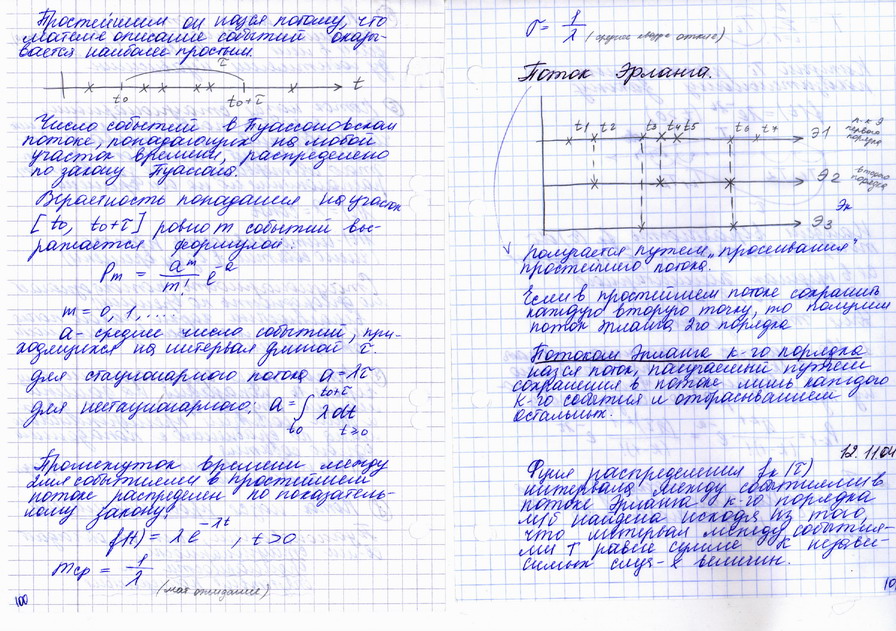 Простейшим он наз-ся потому, что
матем-е описание событий оказы-
вается наиболее простым.
τ
t₀ t₀+τ t
Число событий в Пуассоновском
потоке, попадающих на любой
участок времени, распределено
по закону Пуассона.
Вероятность попадания на участок
[t₀, t₀+τ] равно m событий вы-
ражается формулой:
Pm = a^m / m! e^-a
m = 0, 1, ....
a - среднее число событий, при-
ходящихся на интервал длиной τ.
для стационарного потока a = λτ
для нестационарного: a = ∫ λdt
t₀+τ
t₀ t ≥ 0
Промежуток времени между
2мя событиями в простейшем
потоке распределен по показатель-
ному закону:
f(t) = λe^-λt , t > 0
mср = 1/λ
(мат ожидание)
100
σ = 1/λ
Поток Эрланга.
t1 t2 t3 t4 t5 t6 t7 Э1
первого
порядка
Э2 второго
порядка
Эк
Э3
получается путем „просеивания"
простейшего потока.
Если в простейшем потоке сохранить
каждую вторую точку, то получим
поток Эрланга 2го порядка
Потоком Эрланга к-го порядка
наз-ся поток, получаемый путем
сохранения в потоке лишь каждого
к-го события и отбрасыванием
остальных.
12.11.04
Ф-ция распределения fk(τ)
интервала между событиями в
потоке Эрланга к-го порядка
м/б найдена исходя из того,
что интервал между события-
ми T равен сумме к незави-
симых случ-х величин.
10